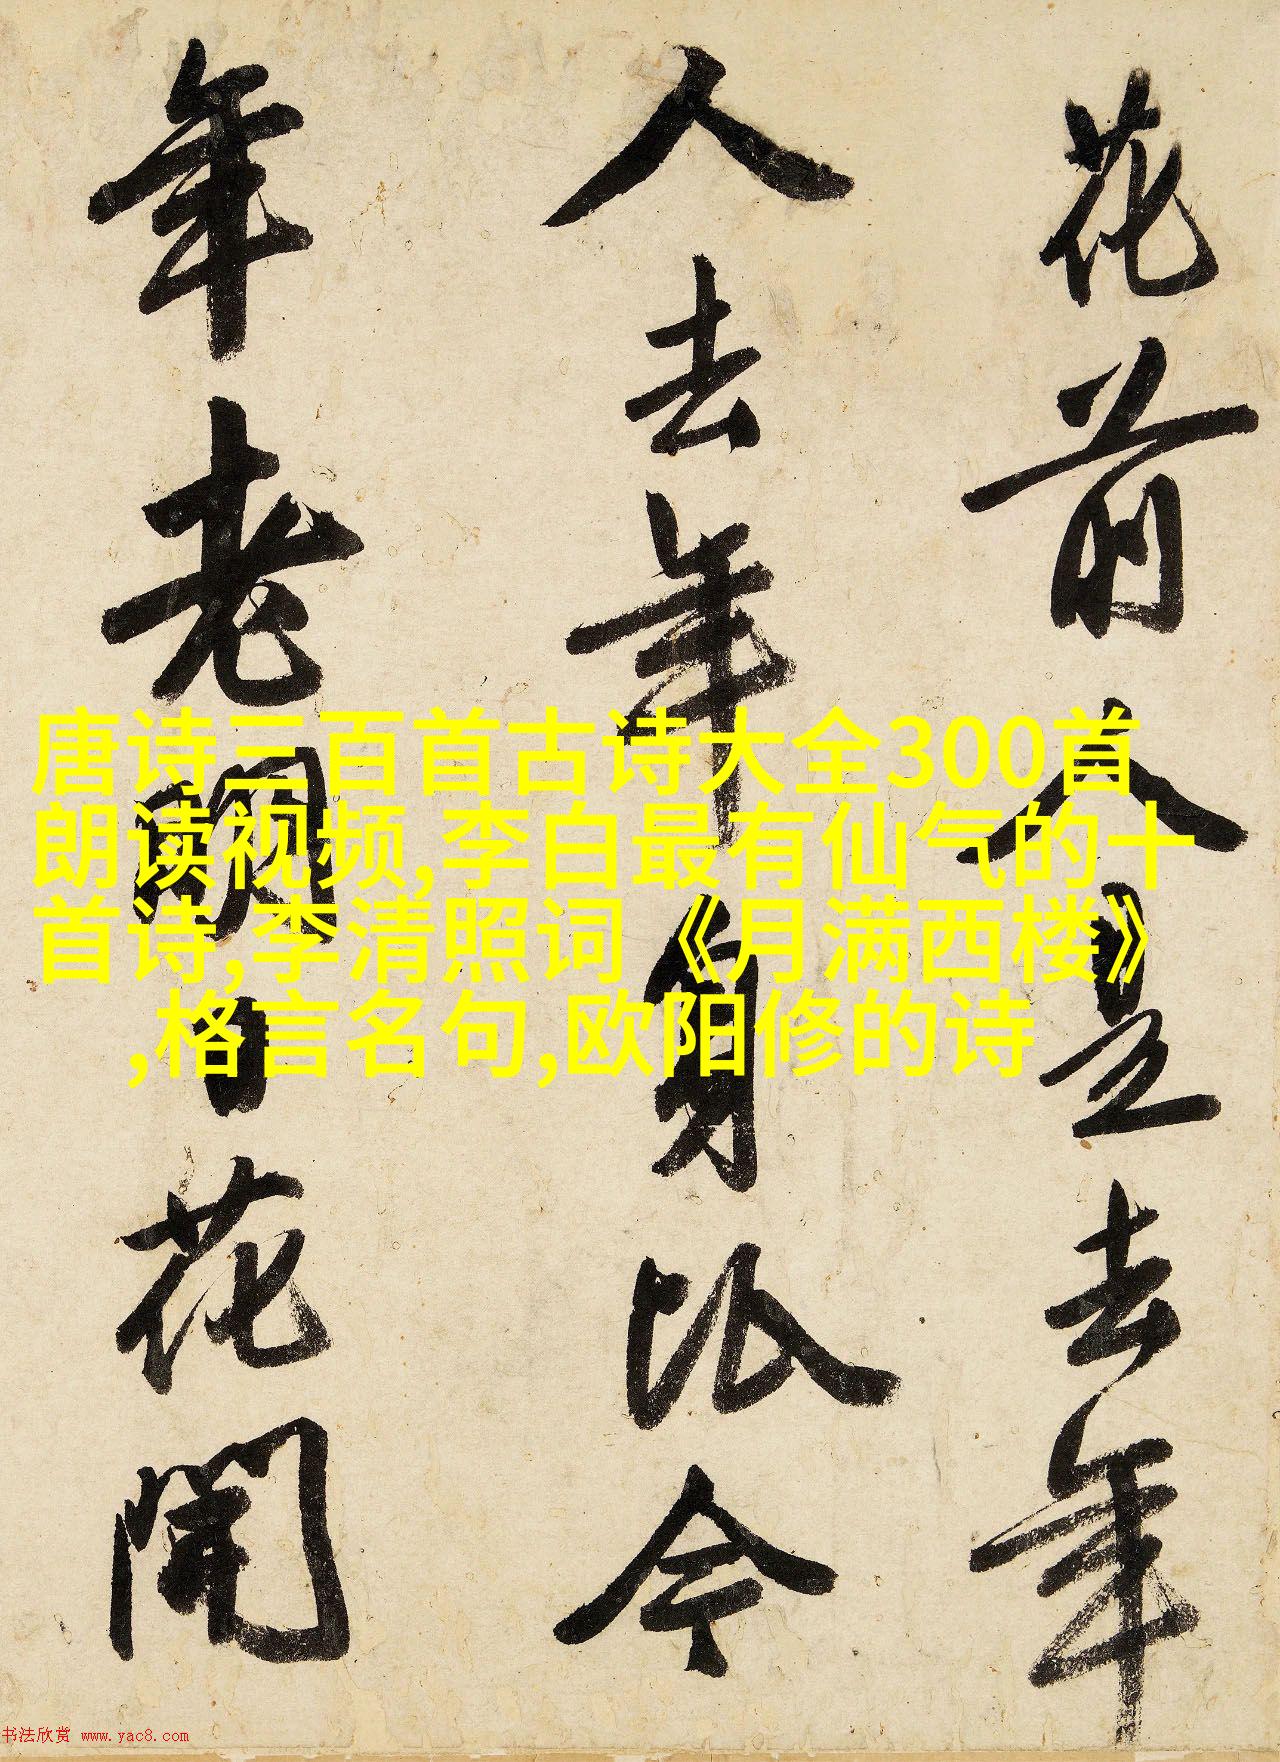 花前人是去年
人去年身比今
年老明日花開
唐诗三百首古诗大全300首
朗读视频,李白最有仙气的十
首诗,李清照词《月满西楼》
,格言名句,欧阳修的诗
书法欣赏 www.yac8.com